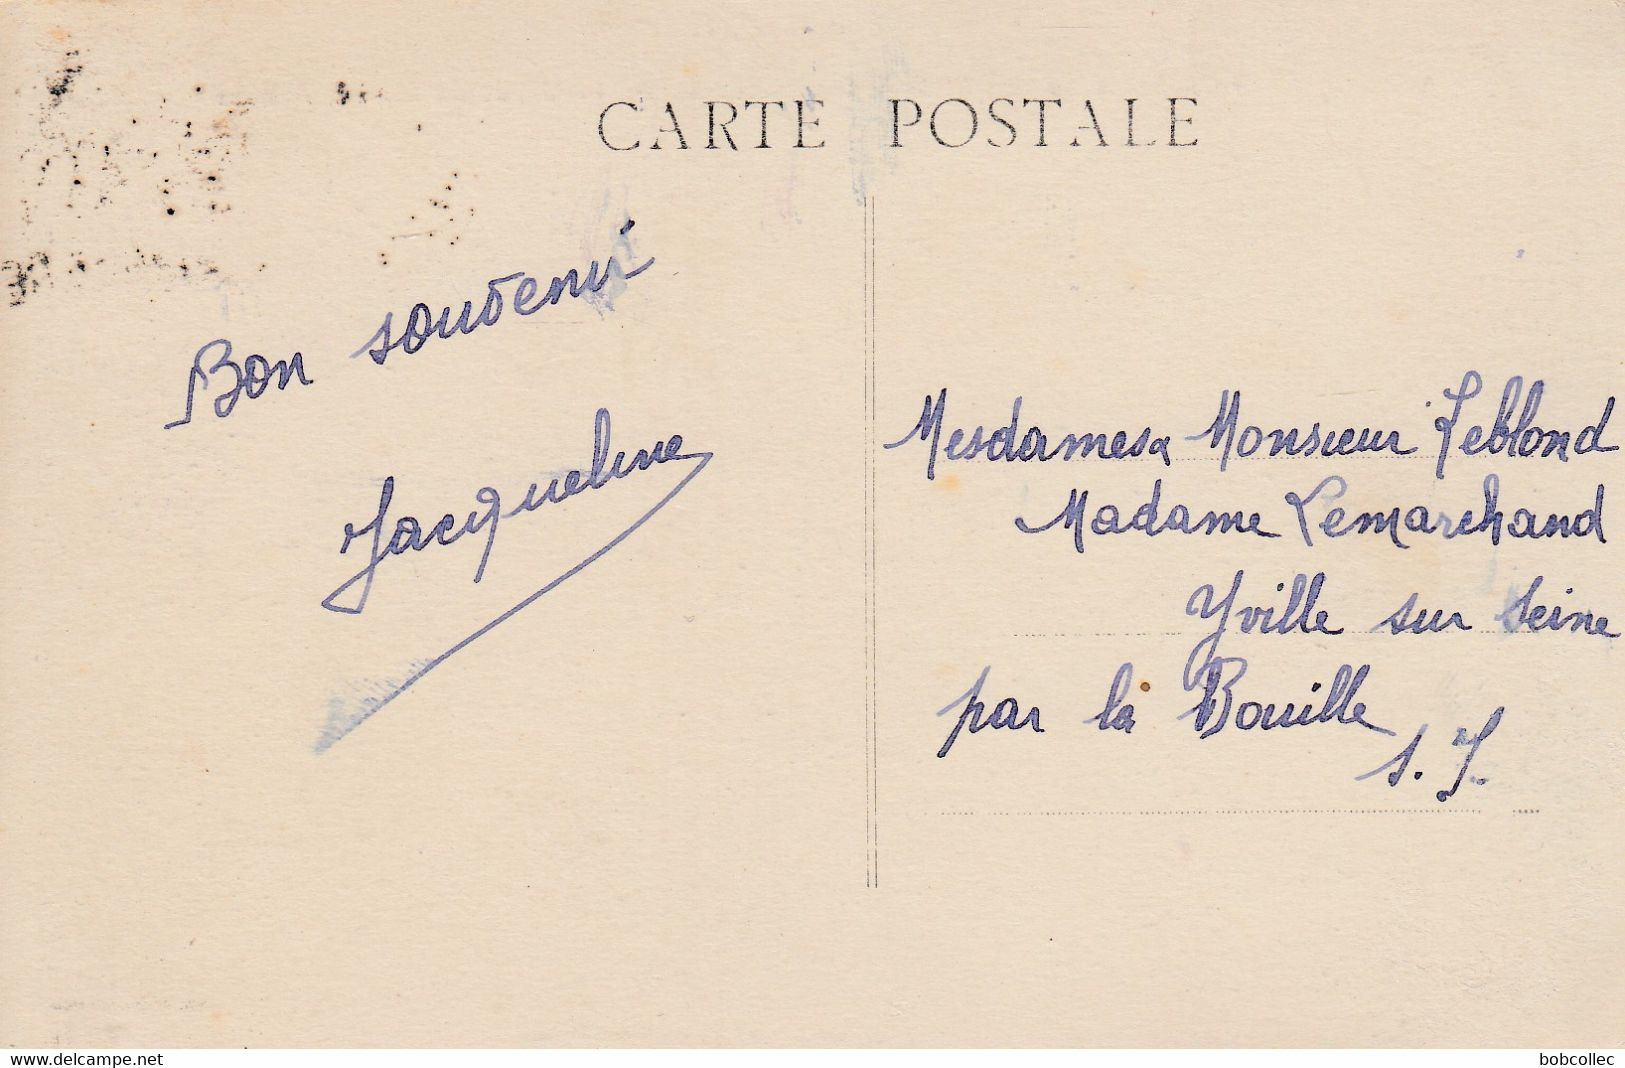 CARTE POSTALE
Bon souvenir
Jacqueline
Mesdames & Monsieur Leblond
Madame Lemarchand
Yville sur Seine
par la Bouille
S. I.
www.delcampe.net
bobcollec